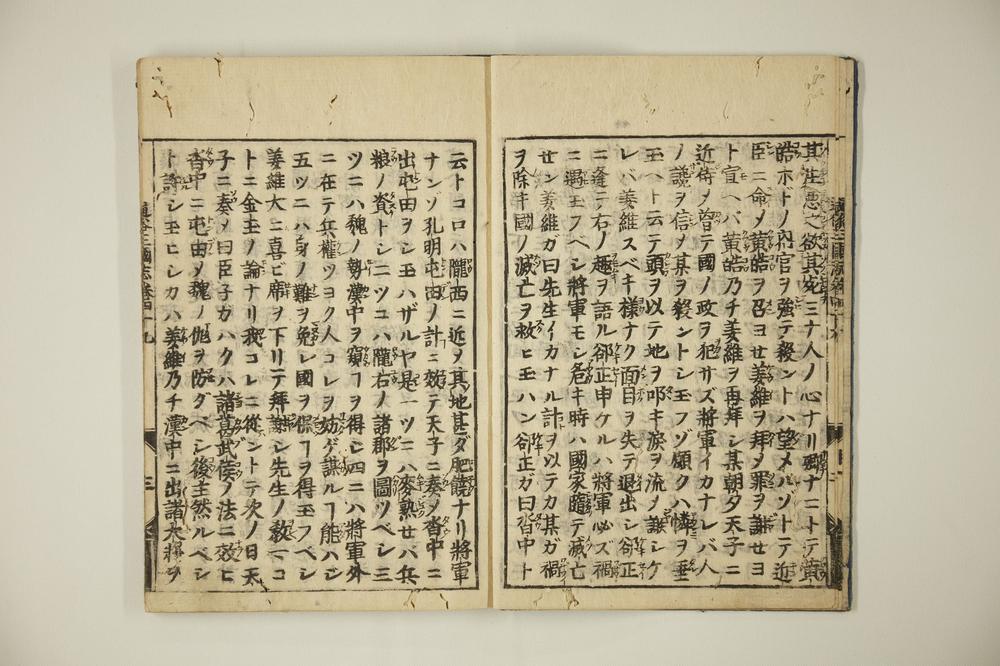 其生惡之欲其死三十人ノ心ナリ獨ナニトテ黃
皓ホドノ內官ヲ強テ殺ントハ望メルゾトテ近
臣ニ命メ黃皓ヲ召ヨせ姜維ヲ拜メ罪ヲ謝せヨ
ト宣ヘバ黃皓乃チ姜維ヲ再拜シ某朝夕天子ニ
近侍ノ曽テ國ノ政ヲ犯サズ將軍イカナレバ人
ノ讒ヲ信メ某ヲ殺ントシ玉フゾ願クハ憐ヲ垂
玉ヘト云テ頭ヲ以テ地ヲ叩キ淚ヲ流メ謝シケ
レバ姜維スベキ樣ナク面目ヲ失テ退出シ郤正
ニ逢テ右ノ趣ヲ語ル郤正申ケルハ將軍必ズ禍
ニ遇玉フベシ將軍モシ危キ時ハ國家隨テ滅亡
せン姜維ガ曰先生イカナル計ヲ以テカ某ガ禍
ヲ除キ國ノ滅亡ヲ救ヒ玉ハン郤正ガ曰沓中ト
云トコロハ隴西ニ近ヲ其地甚ダ肥饒ナリ將軍
ナンゾ孔明屯田ノ計ニ效テ天子ニ奏メ沓中ニ
出屯田ヲシ玉ハザルヤ是一ツニハ麥熟せバ兵
粮ノ資トシ二ツニハ隴右ノ諸郡ヲ圖ツベシ三
ツニハ魏ノ勢漢中ヲ窺ヿヲ得シ四ニハ將軍外
ニ在テ兵權ツヨク人コレヲ妨ゲ謀ルヿ能ハジ
五ツニハ身ノ難ヲ免レ國ヲ保ヿヲ得玉フベシ
姜維大ニ喜ビ席ヲ下リテ拜謝シ先生ノ敎一コ
ト二金玉ノ論ナリ我コレニ從ントテ次ノ日天
子ニ奏メ曰臣子ガハクハ諸葛武侯ノ法ニ效ヒ
沓中ニ屯田メ魏ノ伽ヲ防グベシ後主然ルベシ
ト許シ玉ヒシカハ姜維乃チ漢中ニ出諸大將ヲ
三